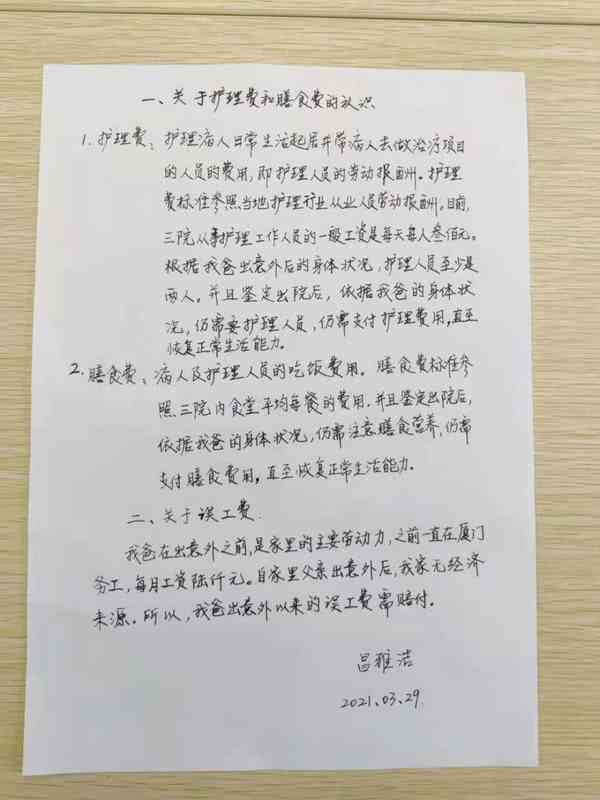 一、关于护理费和膳食费的认识
1. 护理费、护理病人日常生活起居并带病人去做治疗项目
的人员的费用,即护理人员的劳动报酬。护理
费标准参照当地护理行业从业人员劳动报酬。目前,
三院从事护理工作人员的一般工资是每天每人叁佰元。
根据我爸出意外后的身体状况,护理人员至少是
两人。并且鉴定出院后,依据我爸的身体状
况,仍需要护理人员,仍需支付护理费用,直至
恢复正常生活能力。
2. 膳食费、病人及护理人员的吃饭费用。膳食费标准参
照三院内食堂平均每餐的费用。并且鉴定出院后,
依据我爸的身体状况,仍需注意膳食营养,仍需
支付膳食费用,直至恢复正常生活能力。
二、关于误工费.
我爸在出意外之前,是家里的主要劳动力,之前一直在厦门
务工,每月工资陆仟元。自家里父亲出意外后,我家无经济
来源。所以,我爸出意外以来的误工费需赔付。
吕雅洁
2021.03.29.